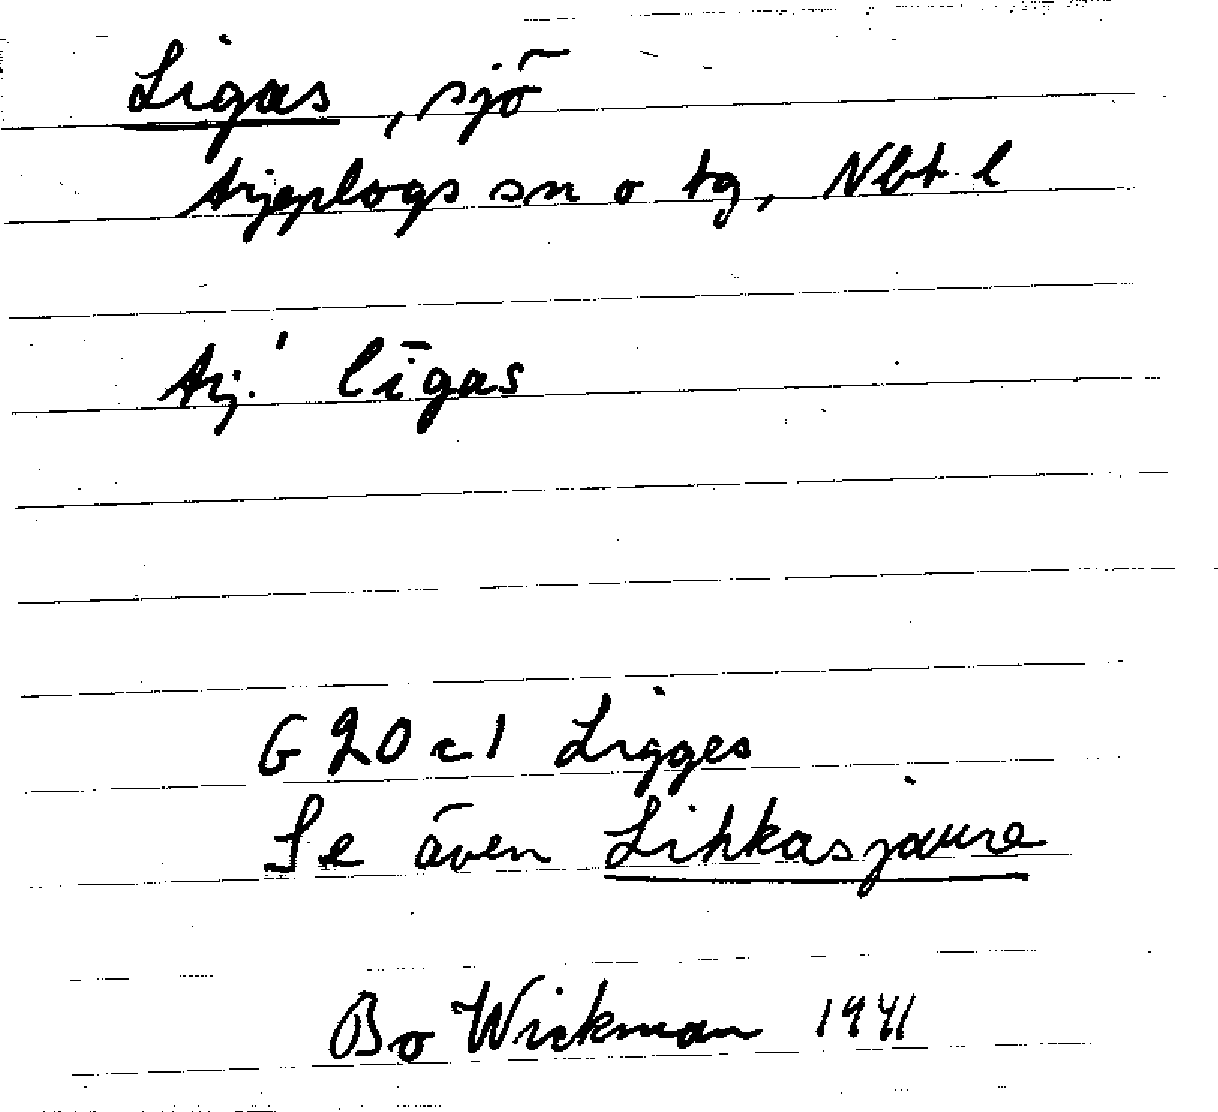 Ligas, sjö
Arjeplogs sn o tg, Nbt l
Arj.' līgas
G 20 c 1 Ligges
Se även Lihkasjaure
Bo Wickman 1941